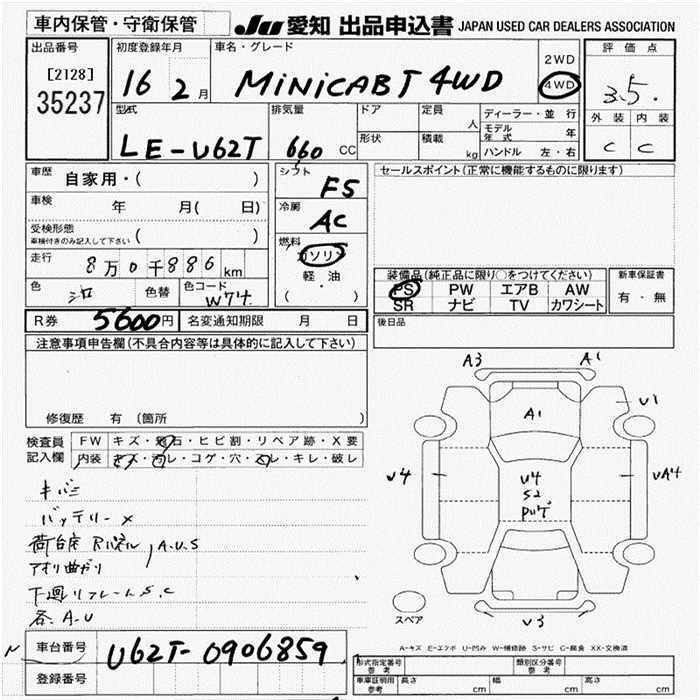 車内保管・守衛保管
JU 愛知 出品申込書 JAPAN USED CAR DEALERS ASSOCIATION
出品番号
[2128]
35237
初度登録年月
16 2月
車名・グレード
MINICAB T 4WD
2WD
4WD
評価点
3.5.
外装 内装
C C
型式
LE-U62T
排気量
660 CC
ドア
形状
定員
人
積載
kg
ディーラー・並行
モデル年式 年
ハンドル 左・右
車歴
自家用・( )
車検
年 月( 日)
受検形態
車検付きのみ記入して下さい ( )
走行
8万0千886km
色
シロ
色替
色コード
W74
シフト
F5
冷房
AC
燃料
ガソリン
軽・油
( )
セールスポイント(正常に機能するものに限ります)
装備品(純正品に限り○をつけてください)
PS PW エアB AW
SR ナビ TV カワシート
新車保証書
有・無
R券 5600円 名変通知期限 月 日
後日品
注意事項申告欄(不具合内容等は具体的に記入して下さい)
修復歴 有 (箇所 )
検査員
記入欄
FW キズ・飛石・ヒビ割・リペア跡・X要
内装 キズ・汚レ・コゲ・穴・スレ・キレ・破レ
キバミ
バッテリー X
荷台床 Rパネル, A.U.S
アオリ曲ガリ
下廻リフレームS.C
各A.U
A3 A1
A1
U1
U4
U4
S2
UA4
U3
スペア
A-キズ E-エクボ U-凹み W-補修跡 S-サビ C-腐食 XX-交換済
車台番号
U62T-0906859
登録番号
型式指定番号
参考
類別区分番号
参考
車庫証明用
参考
長さ cm 幅 cm 高さ cm